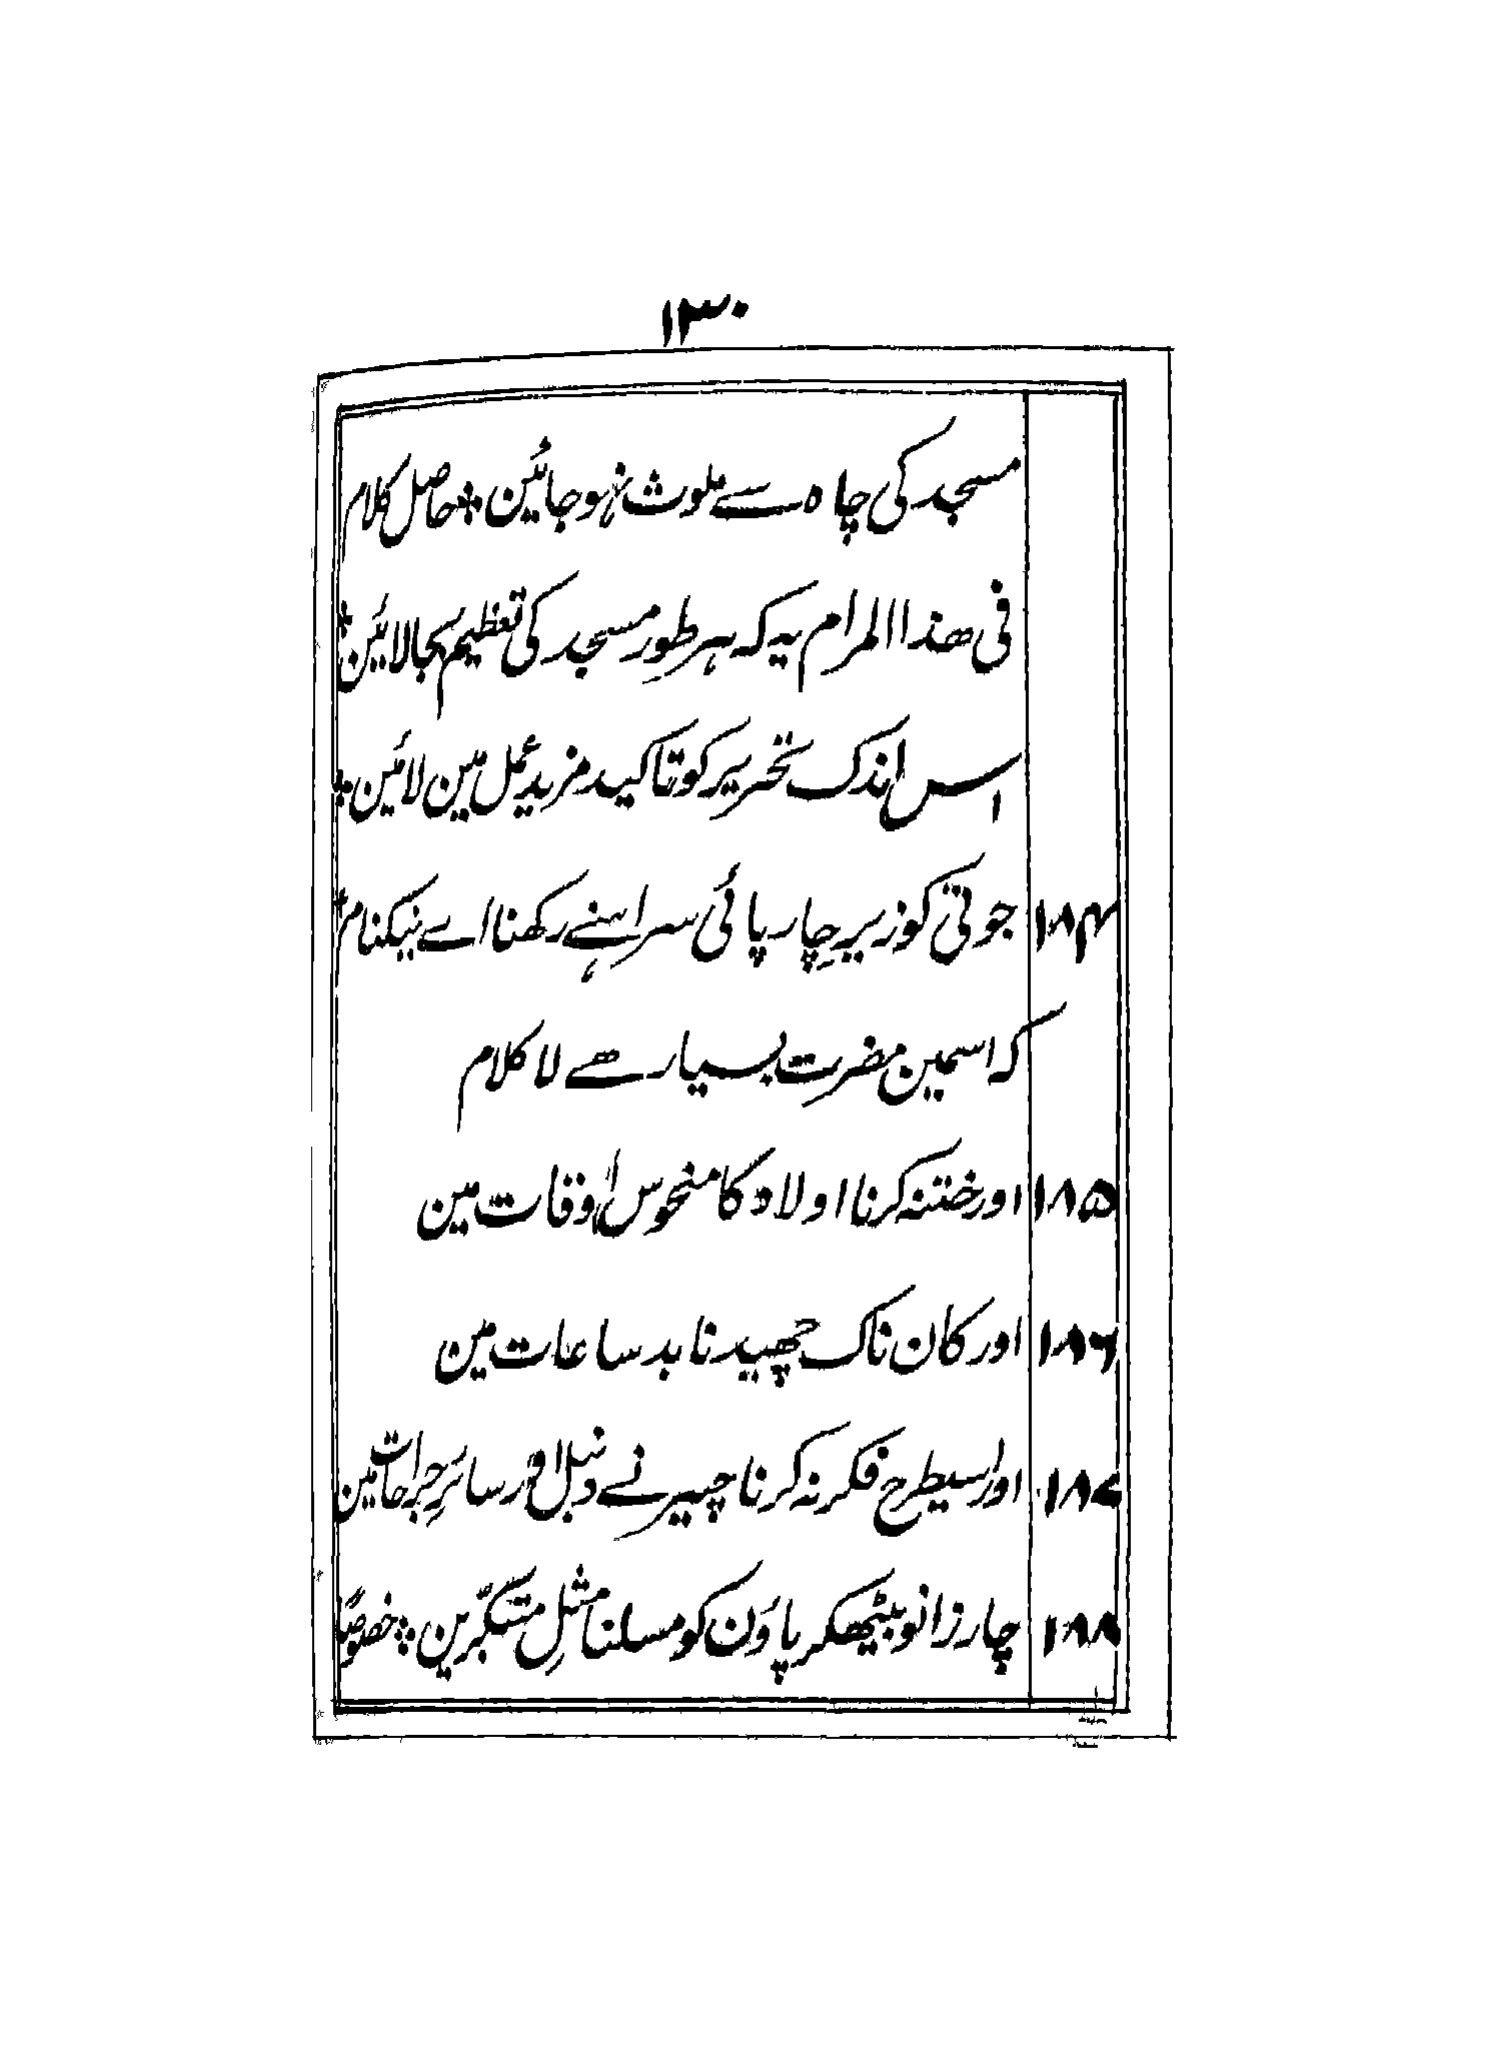 ۱۳۰
مسجد کی چاہ سے ملوث نہو جائین * حاصل کلام
فی ھذا المرام یہ کہ ہر طور مسجد کی تعظیم بجا لائین *
اس اندک تحریر کو تاکید مزید عمل مین لائین *
۱۸۴ جوتی کو زیرِ چارپائی سراہنے رکھنا اے نیکنام *
کہ اسمین مضرتِ بسیار ھے لا کلام
۱۸۵ اور ختنہ کرنا اولاد کا منحوس اوقات مین
۱۸۶ اور کان ناک چھیدنا بد ساعات مین
۱۸۷ اور اسیطرح فکر نہ کرنا چیرنے دنبل اور سائرِ جراحات مین
۱۸۸ چار زانو بیٹھکر پاؤن کو مسلنا مثلِ متکبّرین * خصوصاً